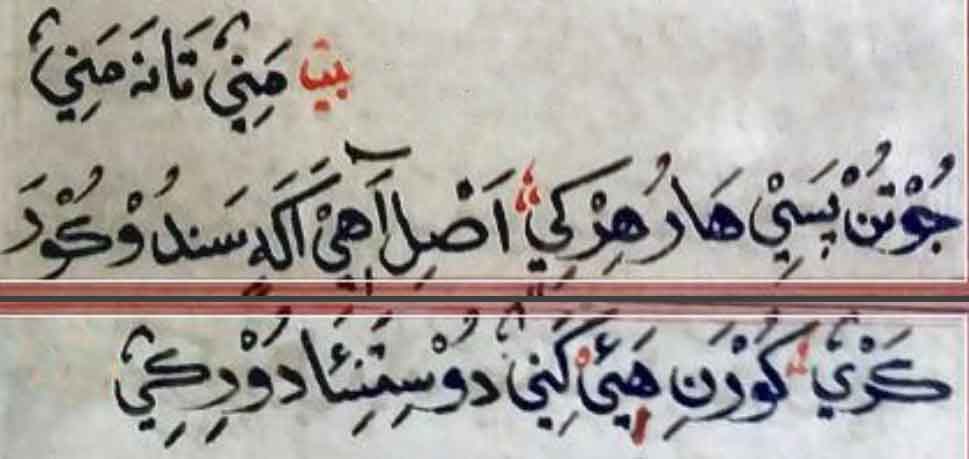 بيت مَنِيْ تَانَہ مَنِيْ
جُوْتُنْ پَسِيْ هَارُ هِرْکِيْ اَصْلِ آهِيْ اَکَہِ سَندُوْ کُوْرَ
کَرْيْ کُوْرَنِ هَيْئِ کَنِيْ دوْسِمِنِئَا دوْرِکِيْ